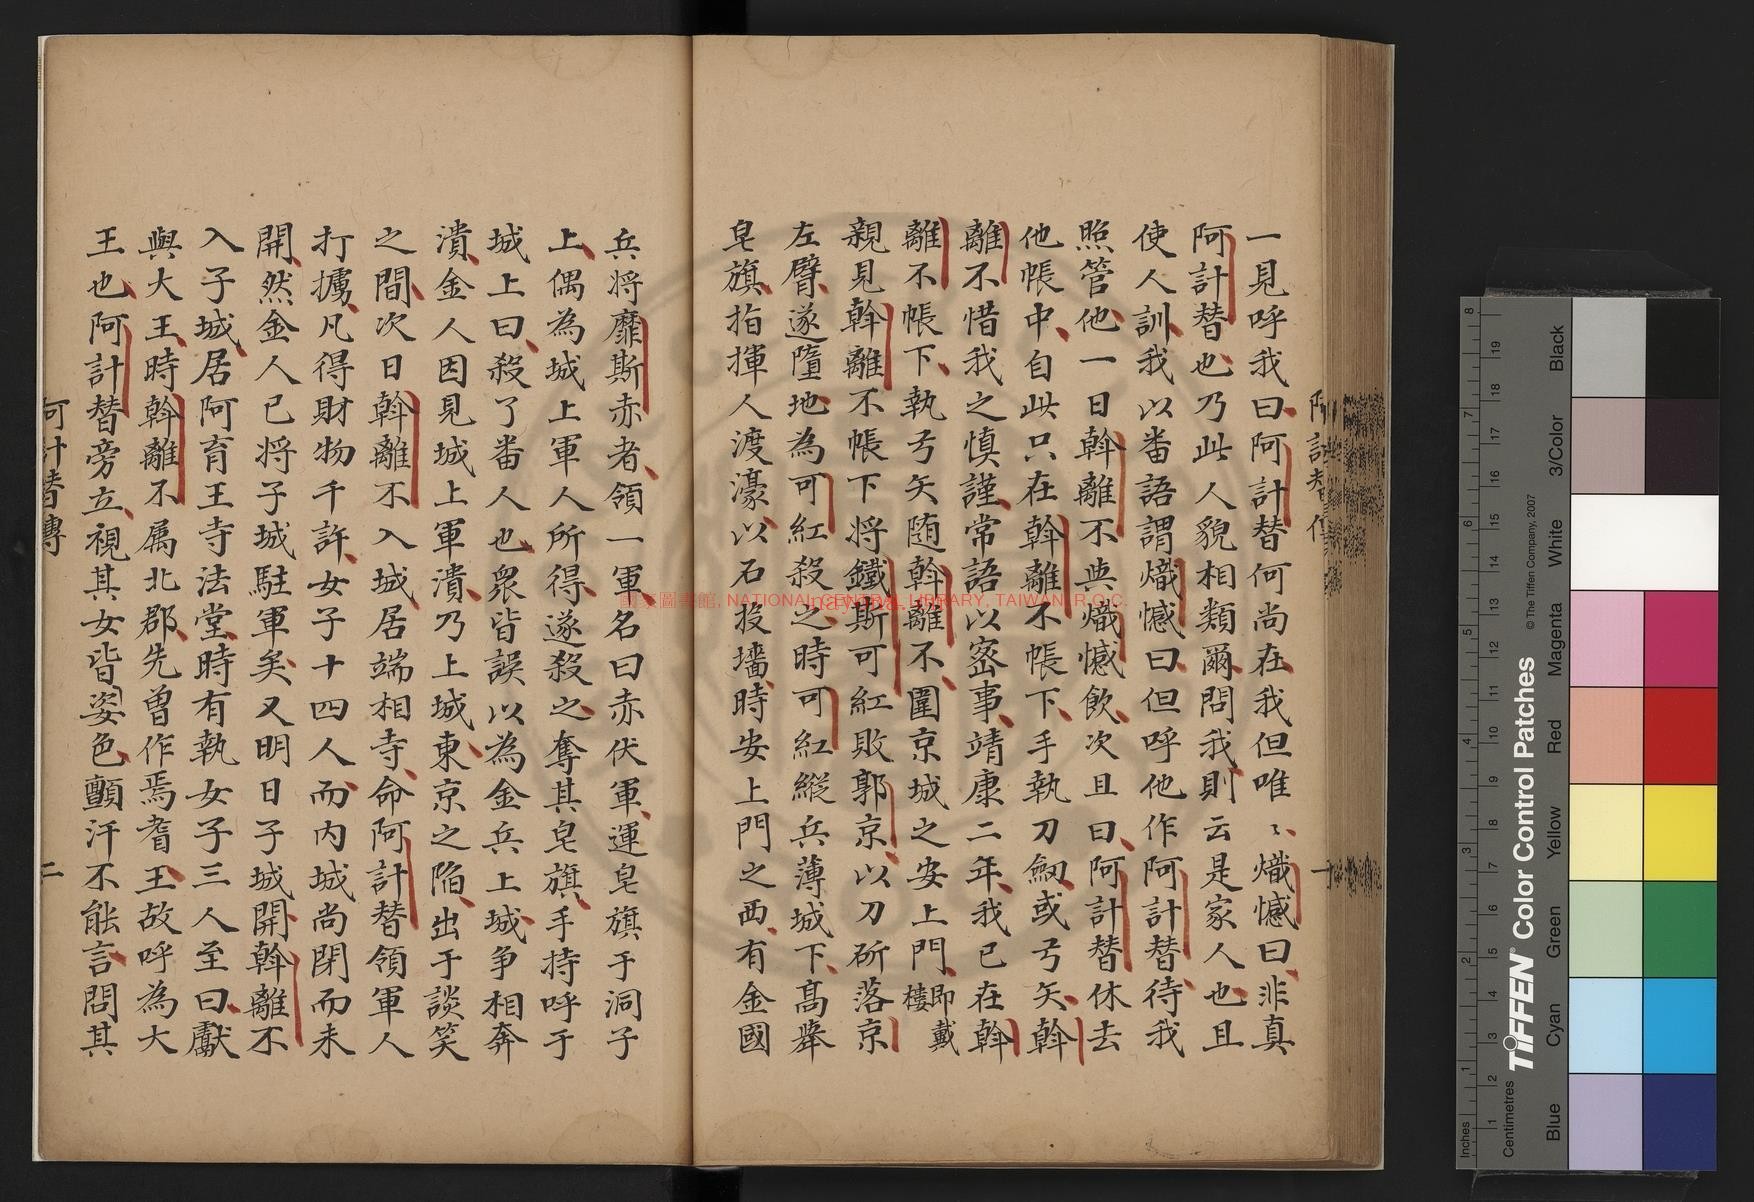 一見呼我曰阿計替何尚在我但唯〻熾憾曰非真
阿計替也乃此人貌相類爾問我則云是家人也且
使人訓我以番語謂熾憾曰但呼他作阿計替待我
照管他一日斡離不與熾憾飲次且曰阿計替休去
他帳中自此只在斡離不帳下手執刀劒或弓矢斡
離不惜我之慎謹常語以密事靖康二年我已在斡
離不帳下執弓矢随斡離不圍京城之安上門即戴樓
親見斡離不帳下将鐵斯可紅敗郭京以刀斫落京
左臂遂墮地為可紅殺之時可紅縱兵薄城下高舉
皂旗指揮人渡濠以石投墻時安上門之西有金國
兵将靡斯赤者領一軍名曰赤伏軍運皂旗于洞子
上偶為城上軍人所得遂殺之奪其皂旗手持呼于
城上曰殺了番人也衆皆誤以為金兵上城争相奔
潰金人因見城上軍潰乃上城東京之陷出于談笑
之間次日斡離不入城居端相寺命阿計替領軍人
打擄凡得財物千許女子十四人而内城尚閉而未
開然金人已将子城駐軍矣又明日子城開斡離不
入子城居阿育王寺法堂時有執女子三人至曰獻
與大王時斡離不属北郡先曾作焉耆王故呼為大
王也阿計替旁立視其女皆姿色顫汗不能言問其
阿計替傳
二
國家圖書館, NATIONAL CENTRAL LIBRARY, TAIWAN, R.O.C.
TIFFEN® Color Control Patches
© The Tiffen Company, 2007
Inches
Centimetres
Blue
Cyan
Green
Yellow
Red
Magenta
White
3/Color
Black